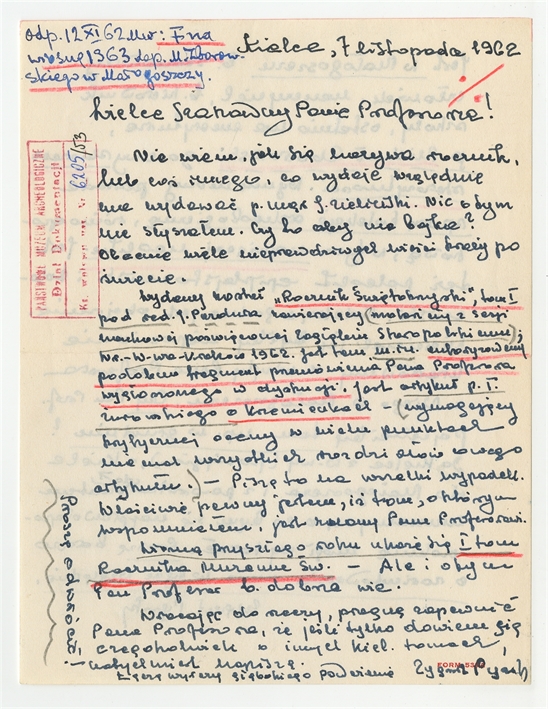 odp. 12 XI 62
wiosnę 1963
skiego w Małogoszczy.
Kielce, 7 listopada 1962
Wielce Szanowny Panie Profesorze!
PAŃSTWOWE MUZEUM ARCHEOLOGICZNE
Dział Dokumentacji
6205/53
Nie wiem, jak się nazywa rocznik,
lub coś innego, co wydaje względnie
ma wydawać p. mgr J. Nic o tym
nie słyszałem. Czy to aby nie bajka?
Obecnie wiele nieprawdziwych wieści krąży po
świecie.
Wydany został „Rocznik Świętokrzyski", tom I
pod red. zawierający materiały z sesji
naukowej poświęconej Zagłębiu Staropolskiemu,
Wr-W-wa-Kraków 1962. Jest tam m.in. autoryzowany
podobno fragment przemówienia Pana Profesora
wygłoszonego w dyskusji. Jest artykuł p. T.
Żurowskiego o Krzemionkach – wymagający
krytycznej oceny w wielu punktach
niemal wszystkich rozdziałów owego
artykułu. – Piszę to na wszelki wypadek.
Właściwie pewny jestem, iż tom, o którym
wspomniałem, jest znany Panu Profesorowi.
Wiosną przyszłego roku ukaże się I tom
Rocznika Muzeum Św. – Ale i o tym
Pan Profesor b. dobrze wie.
Wracając do rzeczy, pragnę zapewnić
Pana Profesora, że jeśli tylko dowiem się
czegokolwiek o innych kiel. tomach,
natychmiast napiszę.
Łączę wyrazy głębokiego poważania Zygmunt Pyzik
Proszę odwrócić!